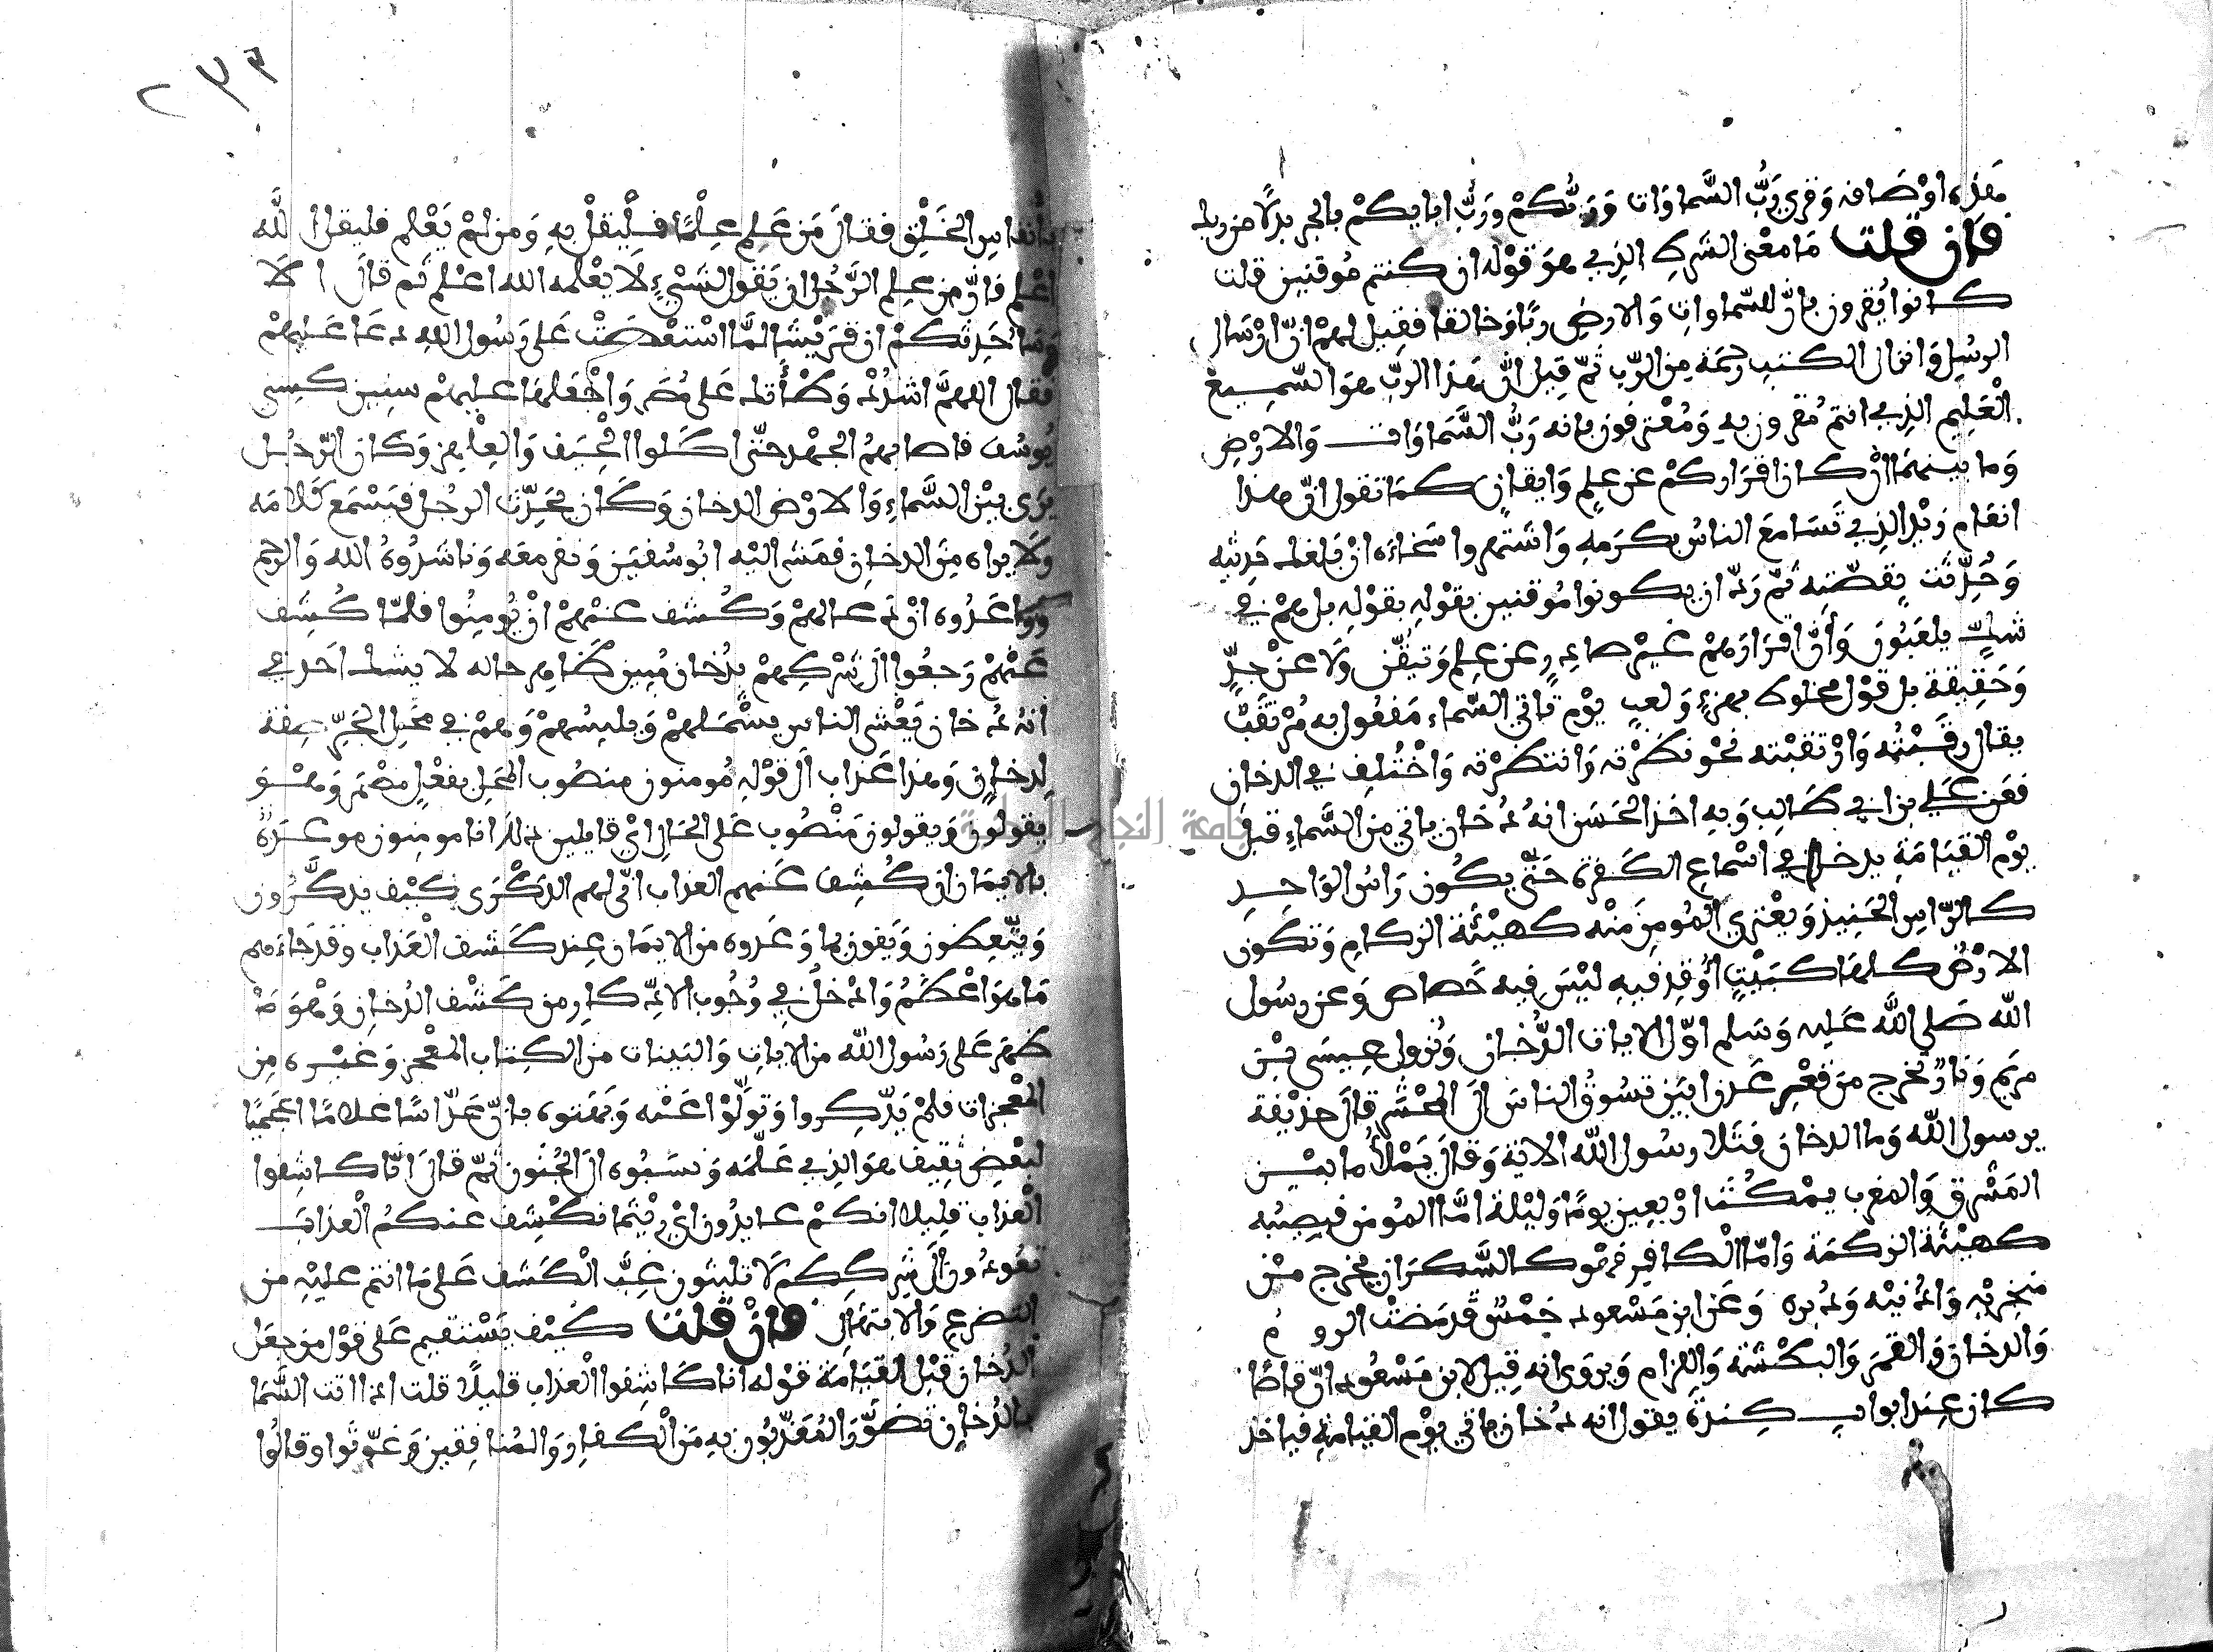 هذه اوْصَافه وَقرِي رَبُّ السَّماوَات وَرَبُّكمْ ورَبِّ ابايكمْ بالجر بدلًا من ربك
فَان قلت مَا معْنى الشرط الذِي هوَ قوْله ان كنتم مُوقنين قلت
كانوا يُقرون بانّ للسّماوات وَالارضِ ربًّا وَخالقا فقِيل لهمْ انّ ارْسَال
الرسُلِ وَانزال الكتبِ رحمَة مِن الرّبِ ثمّ قِيل انّ هَذا الربّ هوَ السّمِيع
الْعَلِيم الذِي انتم مُقرون بهِ وَمُعْترفون بانه رَبُّ السَّمَاوَات وَالارْضِ
وَما بينهمَا انْ كان اقرَاركمْ عن علمٍ وَايقانٍ كمَا تقول انّ هذا
انعَام زيْد الذِي تسَامعَ الناسُ بكرَمهِ وَاشتهروا سَخاءَه انْ بَلغك حَدِيثه
وَحُدِّثت بقصّتِه ثمّ رَدّ ان يكونوا مُوقنين بقوْلهِ بقوْلهِ بل همْ في
شكٍّ يلعَبُونَ وَأنّ اقرَارَهمْ غيْر صادرٍ عن عِلم وَتيقّن ولا عَنْ جِدٍّ
وَحَقِيقة بل قوْل مخلوط بهزءٍ وَلعبٍ يوْم تاتي السّماء مَفعُول به مُرْتقب
يقال رقَبْته وَارْتقبْته نحْو نظرْته وَانتظرْته وَاخْتُلِف في الدخانِ
فعَن عَلي بن ابي طَالِب وَبهِ اخذ الحَسَن انهُ دُخان ياتي من السَّماءِ قبل
يوْم القيَامَةِ يدخل في اسْماعِ الكَفرة حَتّى يكُون رَاسُ الوَاحِدِ
كالرّاسِ الحَنِيذ وَيعْتري المُومِنَ منْه كهيْئَة الزكامِ وَتكون
الارْضُ كلهَا كبَيْتٍ أُوقِد فيهِ ليْسَ فِيه خَصاص وَعن رسُول
الله صَلى الله عَليه وَسَلم اوّل الايات الدُّخان وَنُزول عِيسَى بْن
مريَم وَنارٌ تخرج من قعْرِ عَدن ابيَن تسُوقُ الناسَ الَى المحْشَرِ قالَ حذيْفة
يرسول الله وَما الدخان فتَلا رسُول الله الاية وَقالَ يَمْلأُ ما بيْن
المَشْرق وَالمغرب يمْكُث ارْبعِين يومًا وَليْلة امَّا المُومن فيصِيبُه
كهيْئَة الزكمَة وَامّا الْكافِر فهوَ كالسَّكرَان يخرج مِنْ
منخِريْهِ وَاذنيْه وَدُبره وَعَن ابن مَسْعود خَمْسٌ قد مَضتْ الروم
وَالدخان وَالقمَر وَالبطْشَة وَاللزام وَيروَى انه قِيل لابن مَسْعُود انّ قاصًّا
كان عِند ابوابِ كِندة يقول انه دُخان ياتي يوْم القيامةِ فياخذ
بأنفاسِ الخَلْقِ فقالَ مَن عَلِم عِلْمًا فلْيقلْ بهِ وَمن لمْ يَعْلم فليقل الله
اعْلم فانّ من عِلم الرَّجُل ان يَقول لشَيْءٍ لَا يعْلمه الله اعْلم ثم قالَ الَا
وَسأحَدِثكمْ ان قرَيْشًا لمَّا اسْتعْصَتْ عَلى رَسُول اللهِ دعَا عَليهمْ
فقال اللهمَّ اشدُدْ وَطْأتك عَلى مُضَر وَاجْعَلهَا عليهمْ سنِين كسِني
يُوسُف فاصابهمُ الجهْد حتّى اكَلوا الجِيَف وَالعِلْهِز وَكان الرّجُل
يرَى بيْن السَّماءِ وَالارْضِ الدخان وَكَان يحَدِّث الرجُل فيَسْمَع كَلامَه
وَلا يراه مِن الدخانِ فمَشى اليْه ابُو سُفيَن وَنفر معَه وَناشَدُوهُ الله وَالرحم
وَوَاعَدُوه انْ دَعا لهمْ وَكُشف عنهمْ انْ يُومنُوا فلمّا كُشِف
عَنْهمْ رَجعُوا الَى شرْكِهمْ بدُخان مُبِين ظَاهر حاله لا يشك احَد في
انهُ دُخان يَغْشى الناس يشْمَلهمْ وَيلبِسُهمْ وَهمْ في مَحَل الجَرِّ صِفة
لِدخانٍ وَهذا عَذاب الَى قوْلهِ مُومنون منصُوب المحَل بفعْلٍ مضمَر وَهْوَ
يقولون وَيقولون مَنْصُوب عَلى الحَالِ ايْ قايلِين ذلك انا مومنون موعِدَةٌ
بالايمَان ان كُشِف عَنهم العذاب انّى لهم الذكْرَى كيْف يذكَّرُون
وَيتّعِظون وَيَفون بما وَعَدوه من الايمَان عِند كَشف الْعَذاب وَقد جَاءَهم
مَا هوَ اعْظَمُ وَادْخل في وُجُوب الادِّكار من كَشْف الدُخانِ وَهْوَ مَا
ظهَر عَلى رَسُول الله من الايات وَالبَينات من الكِتاب المُعْجز وَغيْره مِن
المُعْجزات فلمْ يَذّكِروا وَتوَلّوْا عَنْه وَبهَتوه بانّ عَدّاسًا غلامًا اعْجَميّا
لبَعْضِ ثقِيف هوَ الذِي عَلّمَه وَنسَبُوه الَى الجُنُون ثمّ قالَ انّا كاشِفوا
الْعذاب قليلا انكمْ عايدُون ايْ رَيْثما نكْشِف عنكمُ الْعذابَ
تعُودُون الَى شِرككم لا تلبثون غِبَّ الْكَشف عَلى مَا انتم عليْهِ من
التضرعِ وَالابتهَالِ فان قلت كيْف يَسْتقِيم عَلى قوْل من جعَل
الدُخان قبْل القيَامَة قوْله انا كاشِفوا الْعذاب قليلًا قلت اذا اتت السَّمَا
بالدُخانِ تضَوَّر المُعَذّبُون بهِ مَن الكفارِ وَالمُنافِقين وَغوّثوا وقالُوا